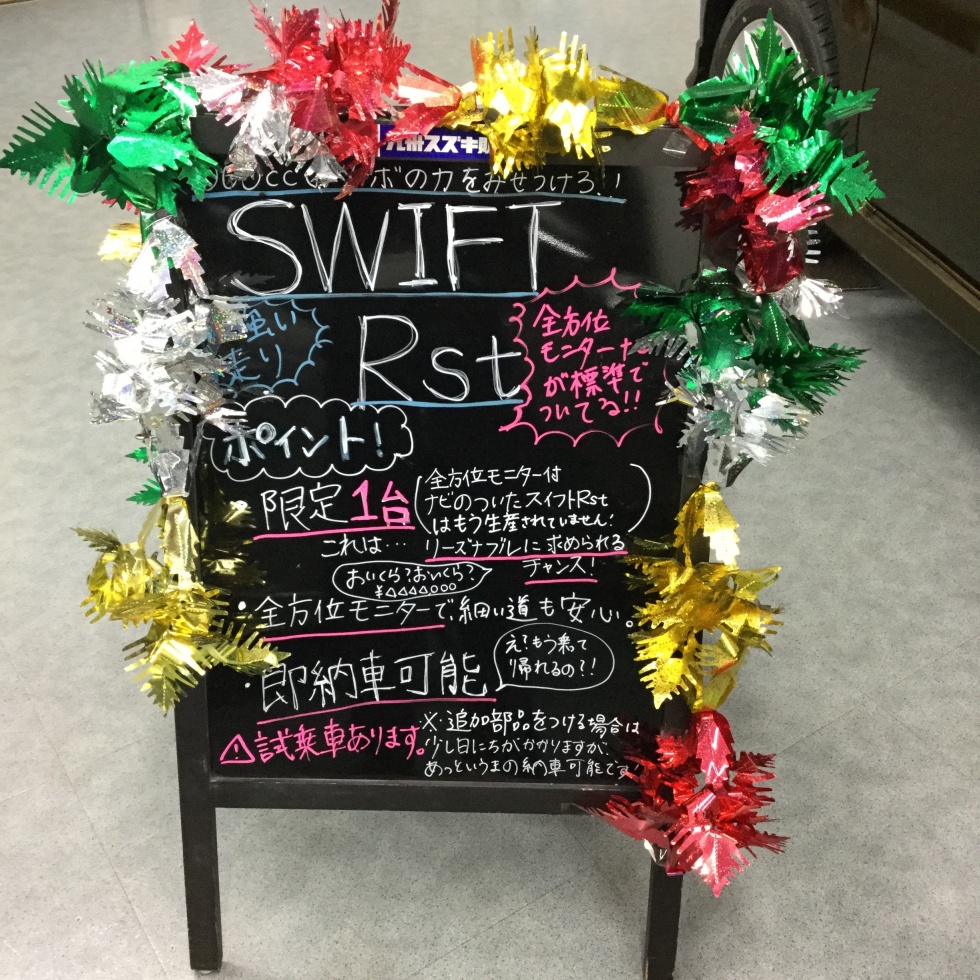 九州スズキ販
ボの力をみせつけろ!!
SWIFT
Rst
強い
走り
全方位
モニター
が標準で
ついてる!!
ポイント!
・限定1台
全方位モニター付
ナビのついたスイフトRst
はもう生産されていません!
これは… リーズナブルに求められる
チャンス!
おいくら?おいくら?
¥△△△△○○○
・全方位モニターで、細い道も安心。
・即納車可能
え?もう乗って
帰れるの?!
⚠試乗車あります。
※追加部品をつける場合は
少し日にちがかかりますが、
あっというまの納車可能です!